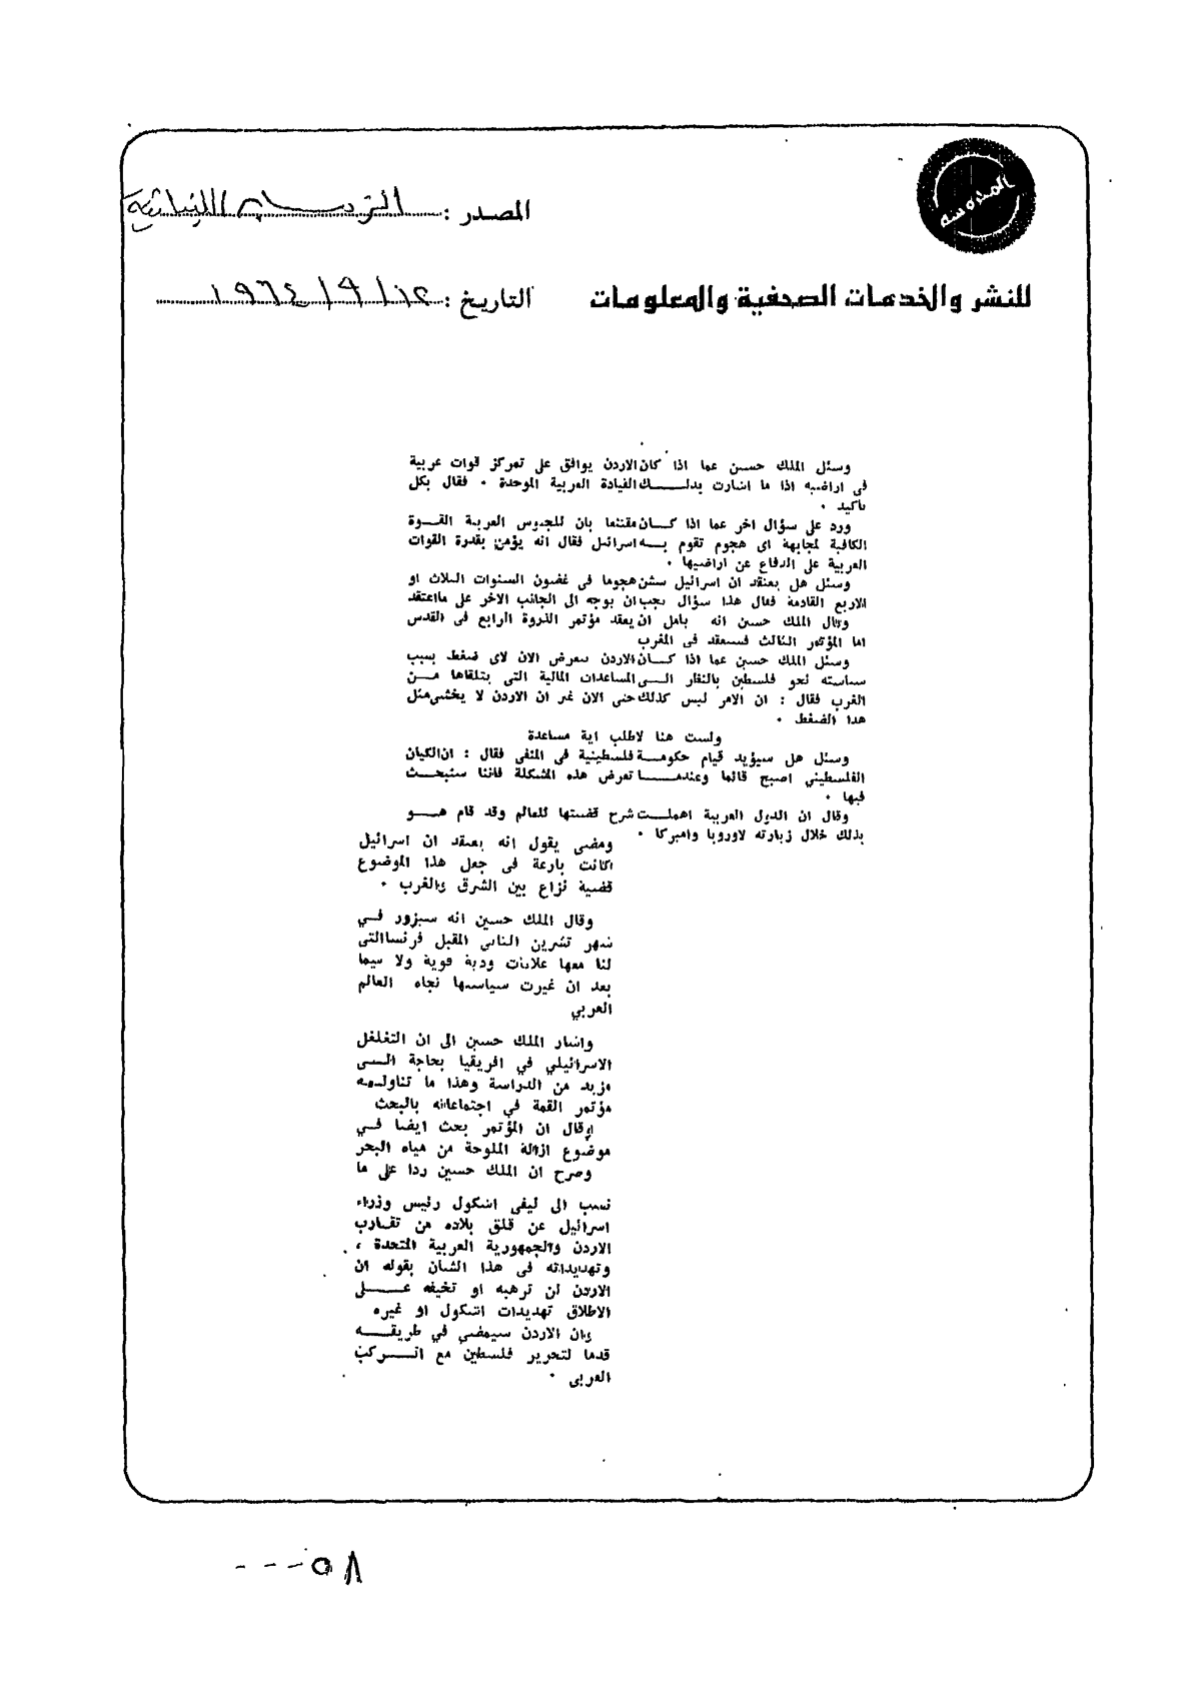 المصدر :
التاريخ : ١٢ / ٩ / ١٩٦٤
للنشر والخدمات الصحفية والمعلومات
وسئل الملك حسين عما اذا كان الاردن يوافق على تمركز قوات عربية
فى اراضيه اذا ما اشارت بذلــــك القيادة العربية الموحدة . فقال بكل
تأكيد .
ورد على سؤال اخر عما اذا كــان مقتنعا بان للجيوش العربية القــوة
الكافية لمجابهة اى هجوم تقوم بــه اسرائيل فقال انه يؤمن بقدرة القوات
العربية على الدفاع عن اراضيها .
وسئل هل يعتقد ان اسرائيل ستشن هجوما فى غضون السنوات الثلاث او
الاربع القادمة فقال هذا سؤال يجب ان يوجه الى الجانب الاخر على مااعتقد
وقال الملك حسين انه يامل ان يعقد مؤتمر الذروة الرابع فى القدس
اما المؤتمر الثالث فسيعقد فى المغرب
وسئل الملك حسين عما اذا كــان الاردن يتعرض الان لاى ضغط بسبب
سياسته نحو فلسطين بالنظار الــى المساعدات المالية التى يتلقاها مــن
الغرب فقال : ان الامر ليس كذلك حتى الان غير ان الاردن لا يخشى مثل
هذا الضغط .
ولست هنا لاطلب اية مساعدة
وسئل هل سيؤيد قيام حكومــة فلسطينية فى المنفى فقال : ان الكيان
الفلسطيني اصبح قائما وعندمــــا تعرض هذه المشكلة فاننا سنبحــث
فيها .
وقال ان الدول العربية اهملــت شرح قضيتها للعالم وقد قام هــو
بذلك خلال زيارته لاوروبا وامیركا .
ومضى يقول انه يعتقد ان اسرائيل
كانت بارعة فى جعل هذا الموضوع
قضية نزاع بين الشرق والغرب .
وقال الملك حسين انه سيزور فــي
شهر تشرين الثانى المقبل فرنساالتى
لنا معها علاقات ودية قوية ولا سيما
بعد ان غيرت سياستها تجاه العالم
العربي
واشار الملك حسين الى ان التغلغل
الاسرائيلي في افريقيا بحاجة الــى
مزيد من الدراسة وهذا ما تناولــه
مؤتمر القمة في اجتماعاته بالبحث
وقال ان المؤتمر بحث ايضا فــي
موضوع ازالة الملوحة من مياه البحر
وصرح ان الملك حسين ردا على ما
نسب الى ليفى اشكول رئيس وزراء
اسرائيل عن قلق بلاده من تقــارب
الاردن والجمهورية العربية المتحدة ،
وتهديداته فى هذا الشان بقوله ان
الاردن لن ترهبه او تخيفه عــــلى
الاطلاق تهديدات اشكول او غيره
وان الاردن سيمضي في طريقــــه
قدما لتحرير فلسطين مع الــــركب
العربى .
٥٨